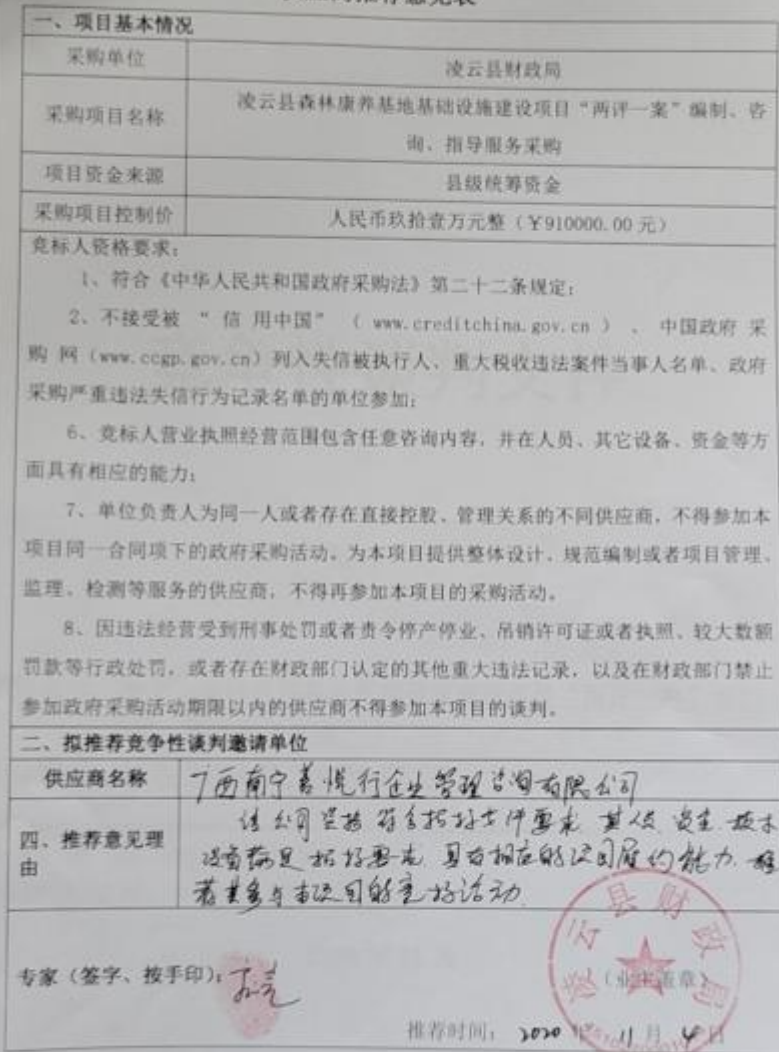 推荐意见表
一、项目基本情况
采购单位 凌云县财政局
采购项目名称 凌云县森林康养基地基础设施建设项目“两评一案”编制、咨
询、指导服务采购
项目资金来源 县级统筹资金
采购项目控制价 人民币玖拾壹万元整（￥910000.00 元）
竞标人资格要求：
1、符合《中华人民共和国政府采购法》第二十二条规定；
2、不接受被 “ 信 用中国” （ www.creditchina.gov.cn ） 、 中国政府 采
购 网（www.ccgp.gov.cn）列入失信被执行人、重大税收违法案件当事人名单、政府
采购严重违法失信行为记录名单的单位参加；
6、竞标人营业执照经营范围包含任意咨询内容，并在人员、其它设备、资金等方
面具有相应的能力；
7、单位负责人为同一人或者存在直接控股、管理关系的不同供应商，不得参加本
项目同一合同项下的政府采购活动。为本项目提供整体设计、规范编制或者项目管理、
监理、检测等服务的供应商，不得再参加本项目的采购活动。
8、因违法经营受到刑事处罚或者责令停产停业、吊销许可证或者执照、较大数额
罚款等行政处罚，或者存在财政部门认定的其他重大违法记录，以及在财政部门禁止
参加政府采购活动期限以内的供应商不得参加本项目的谈判。
二、拟推荐竞争性谈判邀请单位
供应商名称 广西南宁善悦行企业管理咨询有限公司
四、推荐意见理
由
该公司资格符合招标文件要求 其人员 资金 技术
设备满足招标要求 具有相应的项目履约能力 推
荐其参与本项目的竞标活动
凌云县财政局
专家（签字、按手印）： （业主盖章）
推荐时间： 2020 年 11 月 4 日